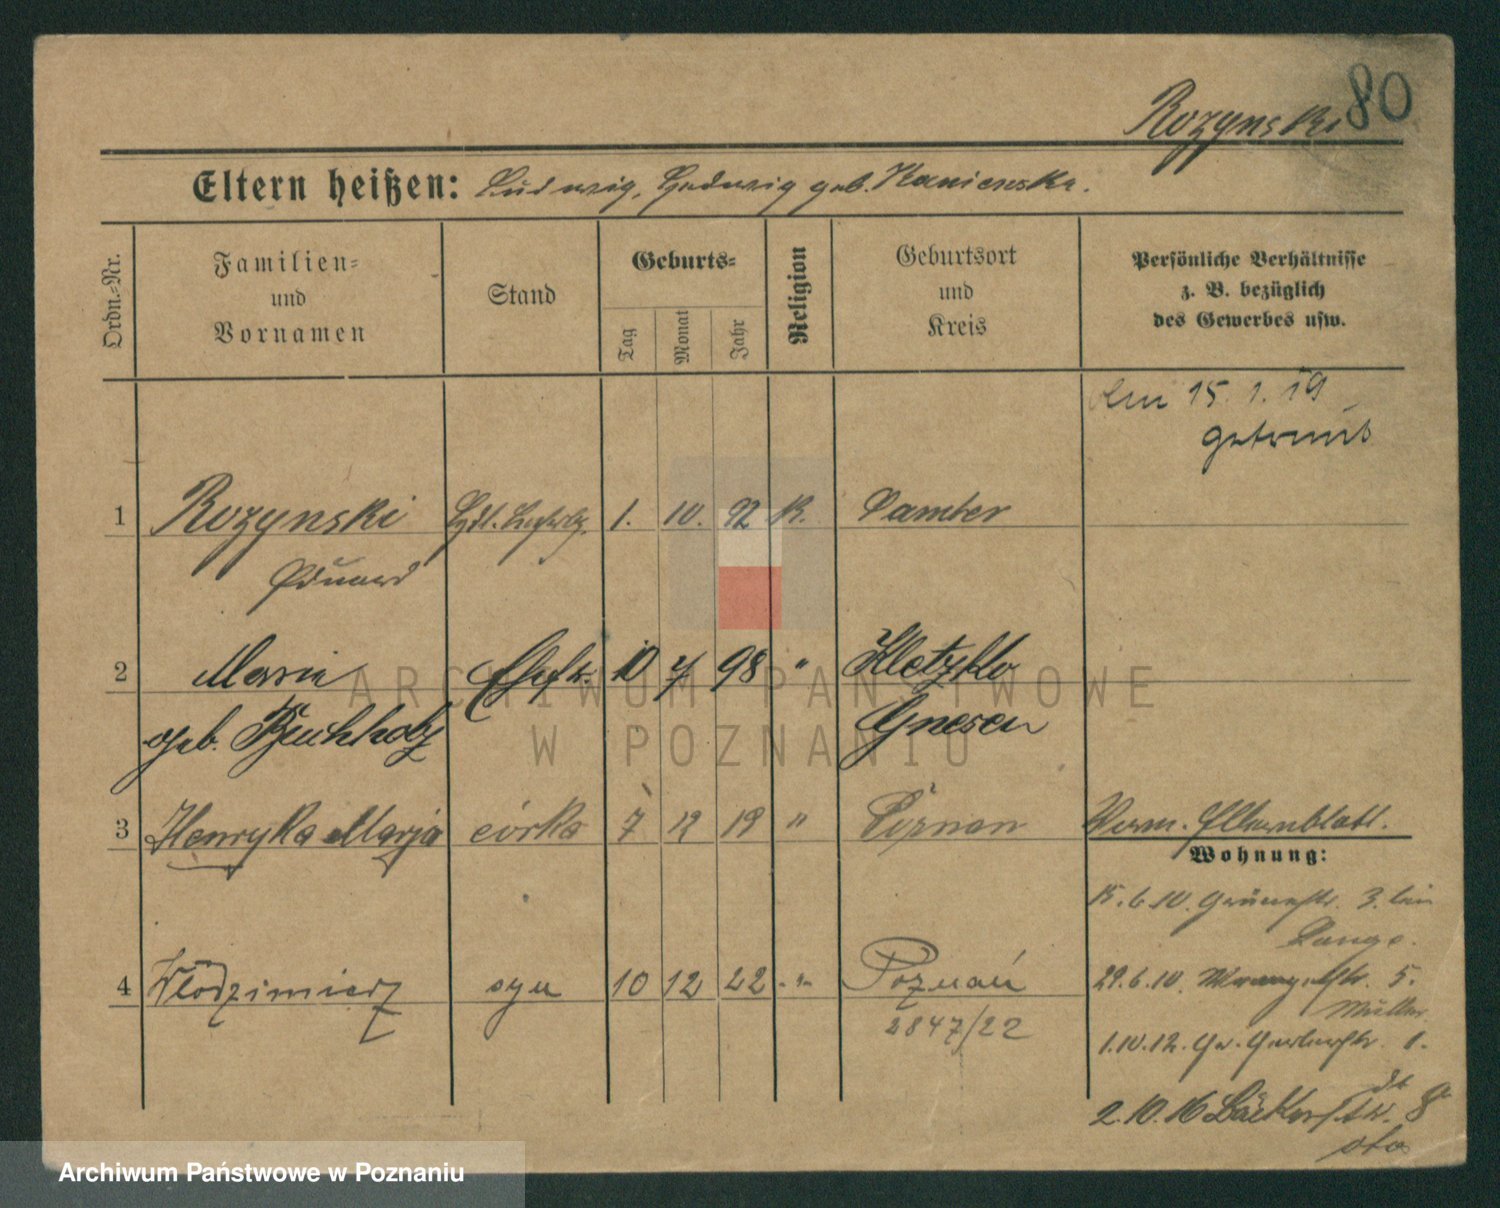 80
Rozynski
Eltern heißen: Ludwig, Hedwig geb. Kanienska.
Ordn.-Nr.
Familien-
und
Vornamen
Stand
Geburts-
Tag
Monat
Jahr
Religion
Geburtsort
und
Kreis
Persönliche Verhältnisse
z. B. bezüglich
des Gewerbes usw.
Am 15. 1. 19
getraut
1 Rozynski 1. 10. 92 K. Samter
Eduard
2 Maria Ehefr. 10 98 " Kletzko
geb. Buchholz Gnesen
3 Henryka Marja córka 7 12 19 " Poznan Verm. Elternblatt.
Wohnung:
15.6.10. Grünestr. 3. bei
Lange.
4 Włodzimierz syn 10 12 22 -"- Poznań 29.6.10. 5.
Müller
2847/22
1.10.12. Gr. Gerberstr. 1.
2.10.16 Bäckerstr. 8
ARCHIWUM PAŃSTWOWE
W POZNANIU
Archiwum Państwowe w Poznaniu